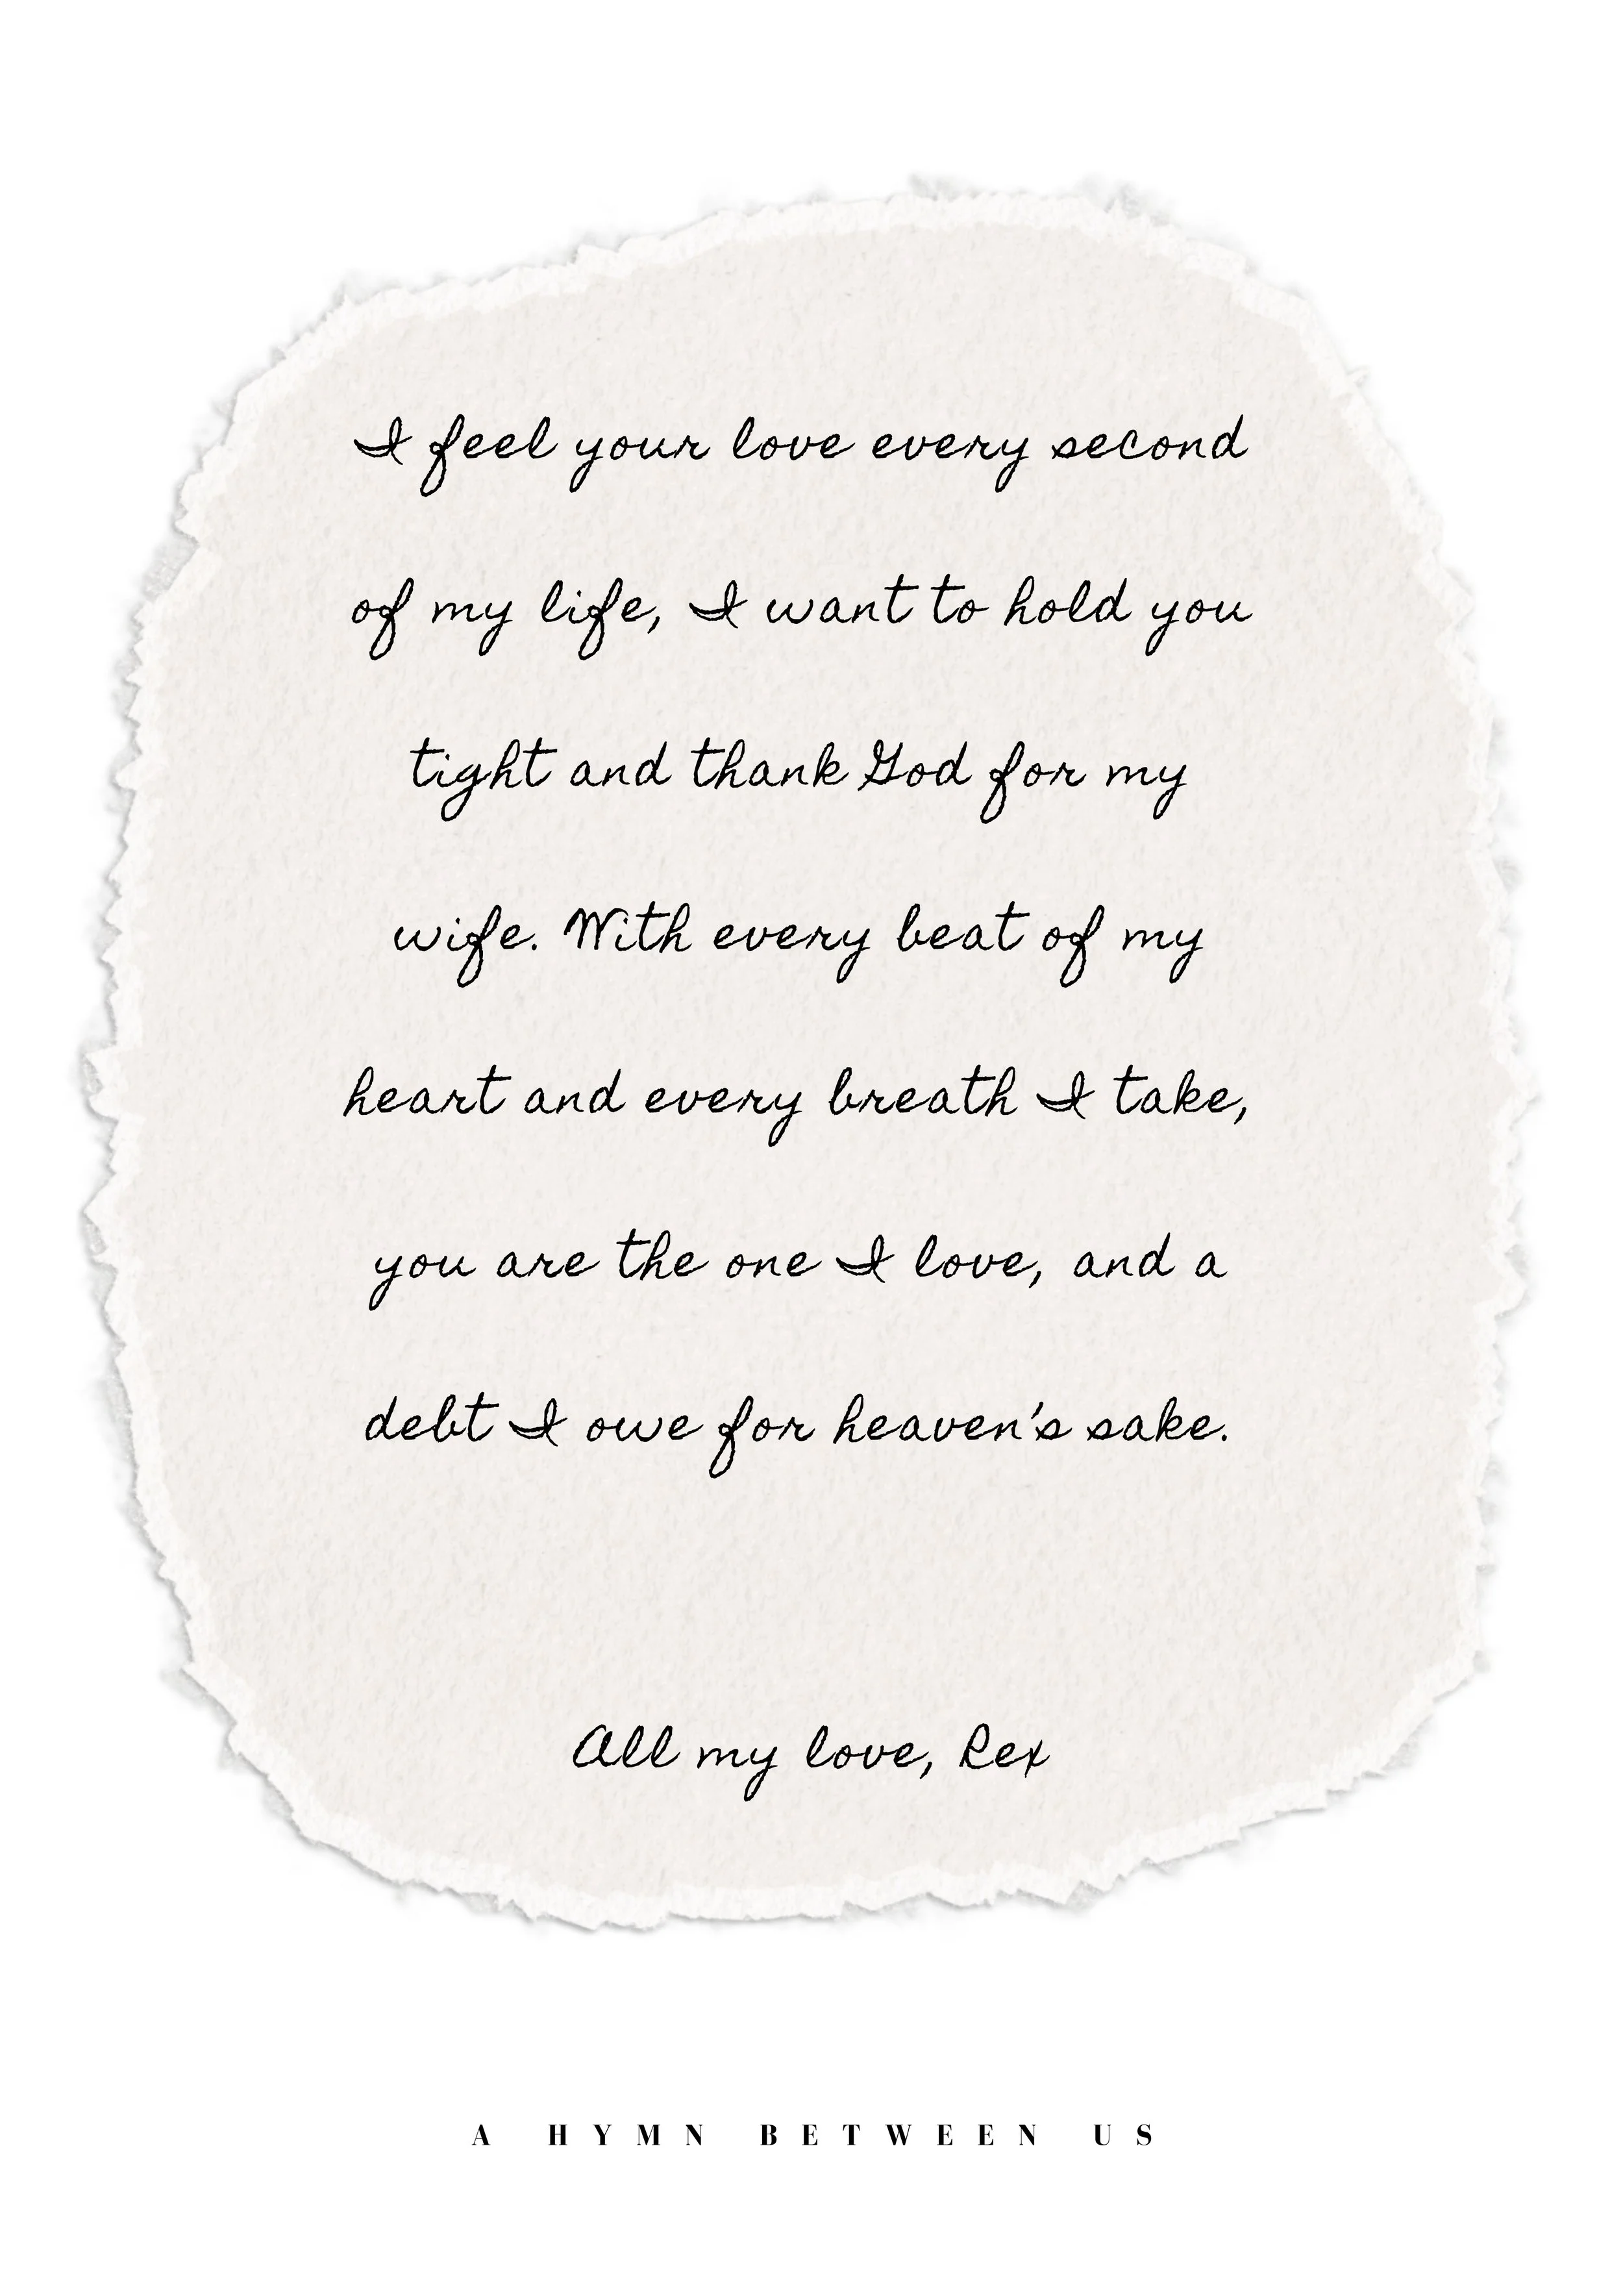 I feel your love every second
of my life, I want to hold you
tight and thank God for my
wife. With every beat of my
heart and every breath I take,
you are the one I love, and a
debt I owe for heaven's sake.
All my love, Rex
A HYMN BETWEEN US